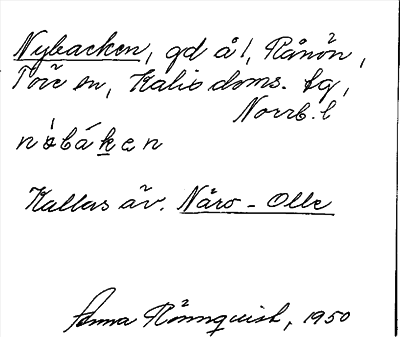 Nybacken, gd å l, Rånön,
Töre sn, Kalix doms. tg,
Norrb. l
nøbáken
Kallas äv. Nårs-Olle
Anna Rönnquist, 1950